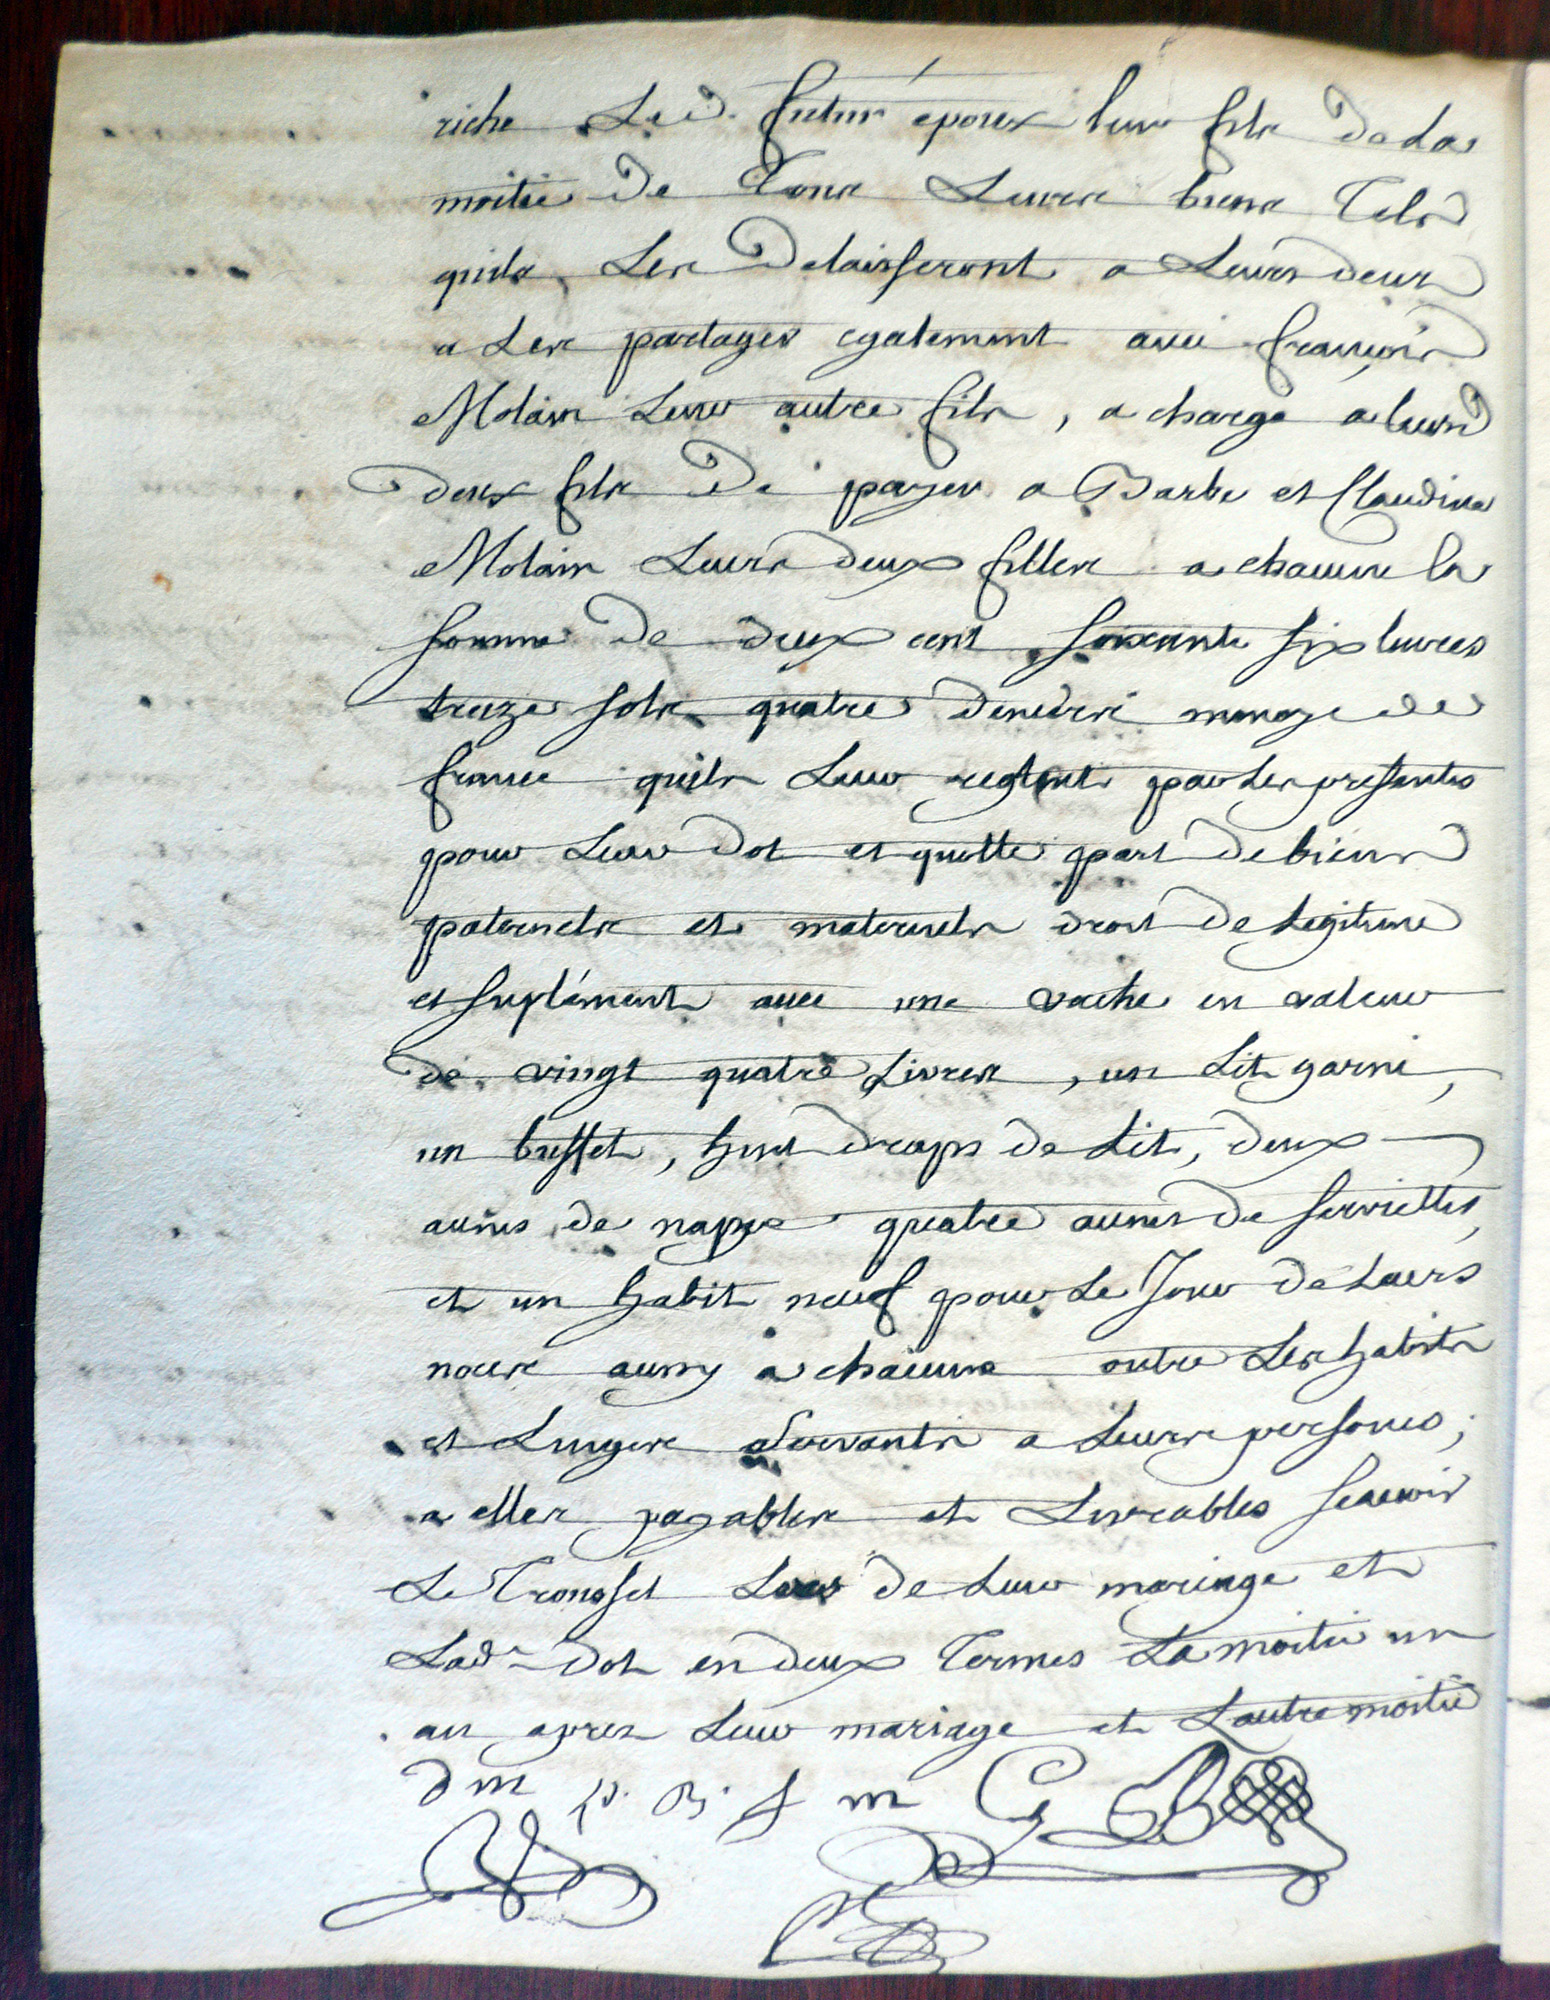 riche Led. futur époux leur fils de La
moitié de Tous Leurs biens Tels
quils Les Delaisseront a Leurs deux
a Les partager egalement avec francois
Molain Leur autre fils, a charge a leurs
deux fils De payer a Barbe et Claudine
Molain Leurs deux filles a chacune la
somme de deux cent soixante six livres
treize sols quatre deniers monoye de
france quils Leur reglent par Les presentes
pour Leur dot et quotte part de biens
paternels et maternels droit de Legitime
et suplément avec une vache en valeur
de vingt quatre Livres, un Lit garni,
un buffet, huit draps de Lit, deux
aunes de nappe quatre aunes de serviettes,
et un habit neuf pour Le Jour de Leurs
noces aussy a chacune outre Les habits
et Linges servants a Leurs persones;
a elles payables et Livrables scavoir
Le Trousset Lors de Leur mariage et
Lad. dot en deux Termes La moitié un
an apres Leur mariage et Lautre moitié
d m p. B. f m G